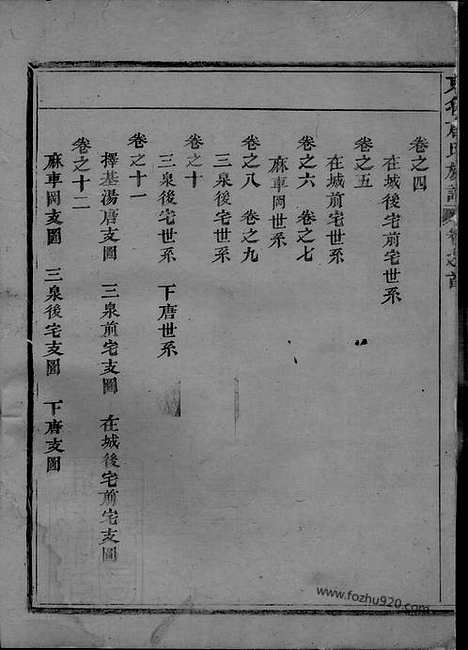 卷之四
在城後宅前宅世系
卷之五
在城前宅世系
卷之六 卷之七
麻車岡世系
卷之八 卷之九
三泉後宅世系
卷之十
三泉後宅世系 下唐世系
卷之十一
擇基湯唐支圖 三泉前宅支圖 在城後宅前宅支圖
卷之十二
麻車岡支圖 三泉後宅支圖 下唐支圖
www.fozhu920.com